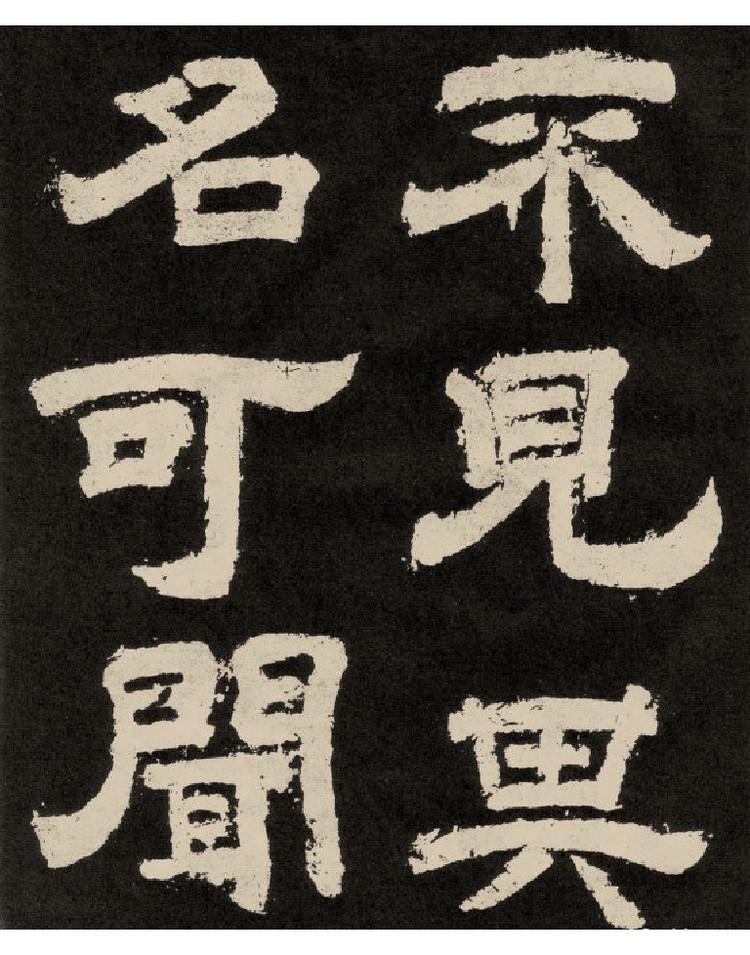 不見異
名可聞